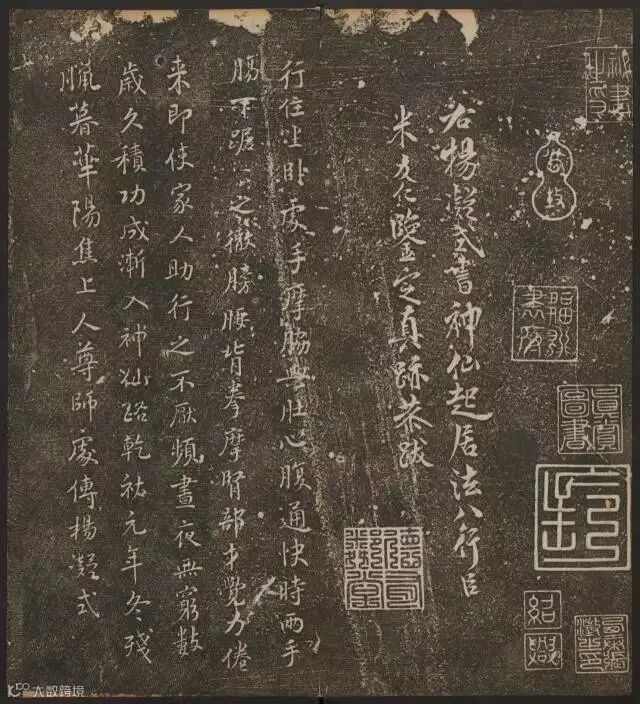 右楊凝式書神仙起居法八行臣
米友仁鑒定真跡恭跋
行住坐卧處手摩脇與肚心腹通快時兩手
腸下踞〻之徹膀腰背拳摩腎部才覺力倦
来即使家人助行之不厭頻晝夜無窮數
歲久積功成漸入神仙路乾祐元年冬殘
臘暮華陽焦上人尊師處傳楊凝式
紹興
大数跨境